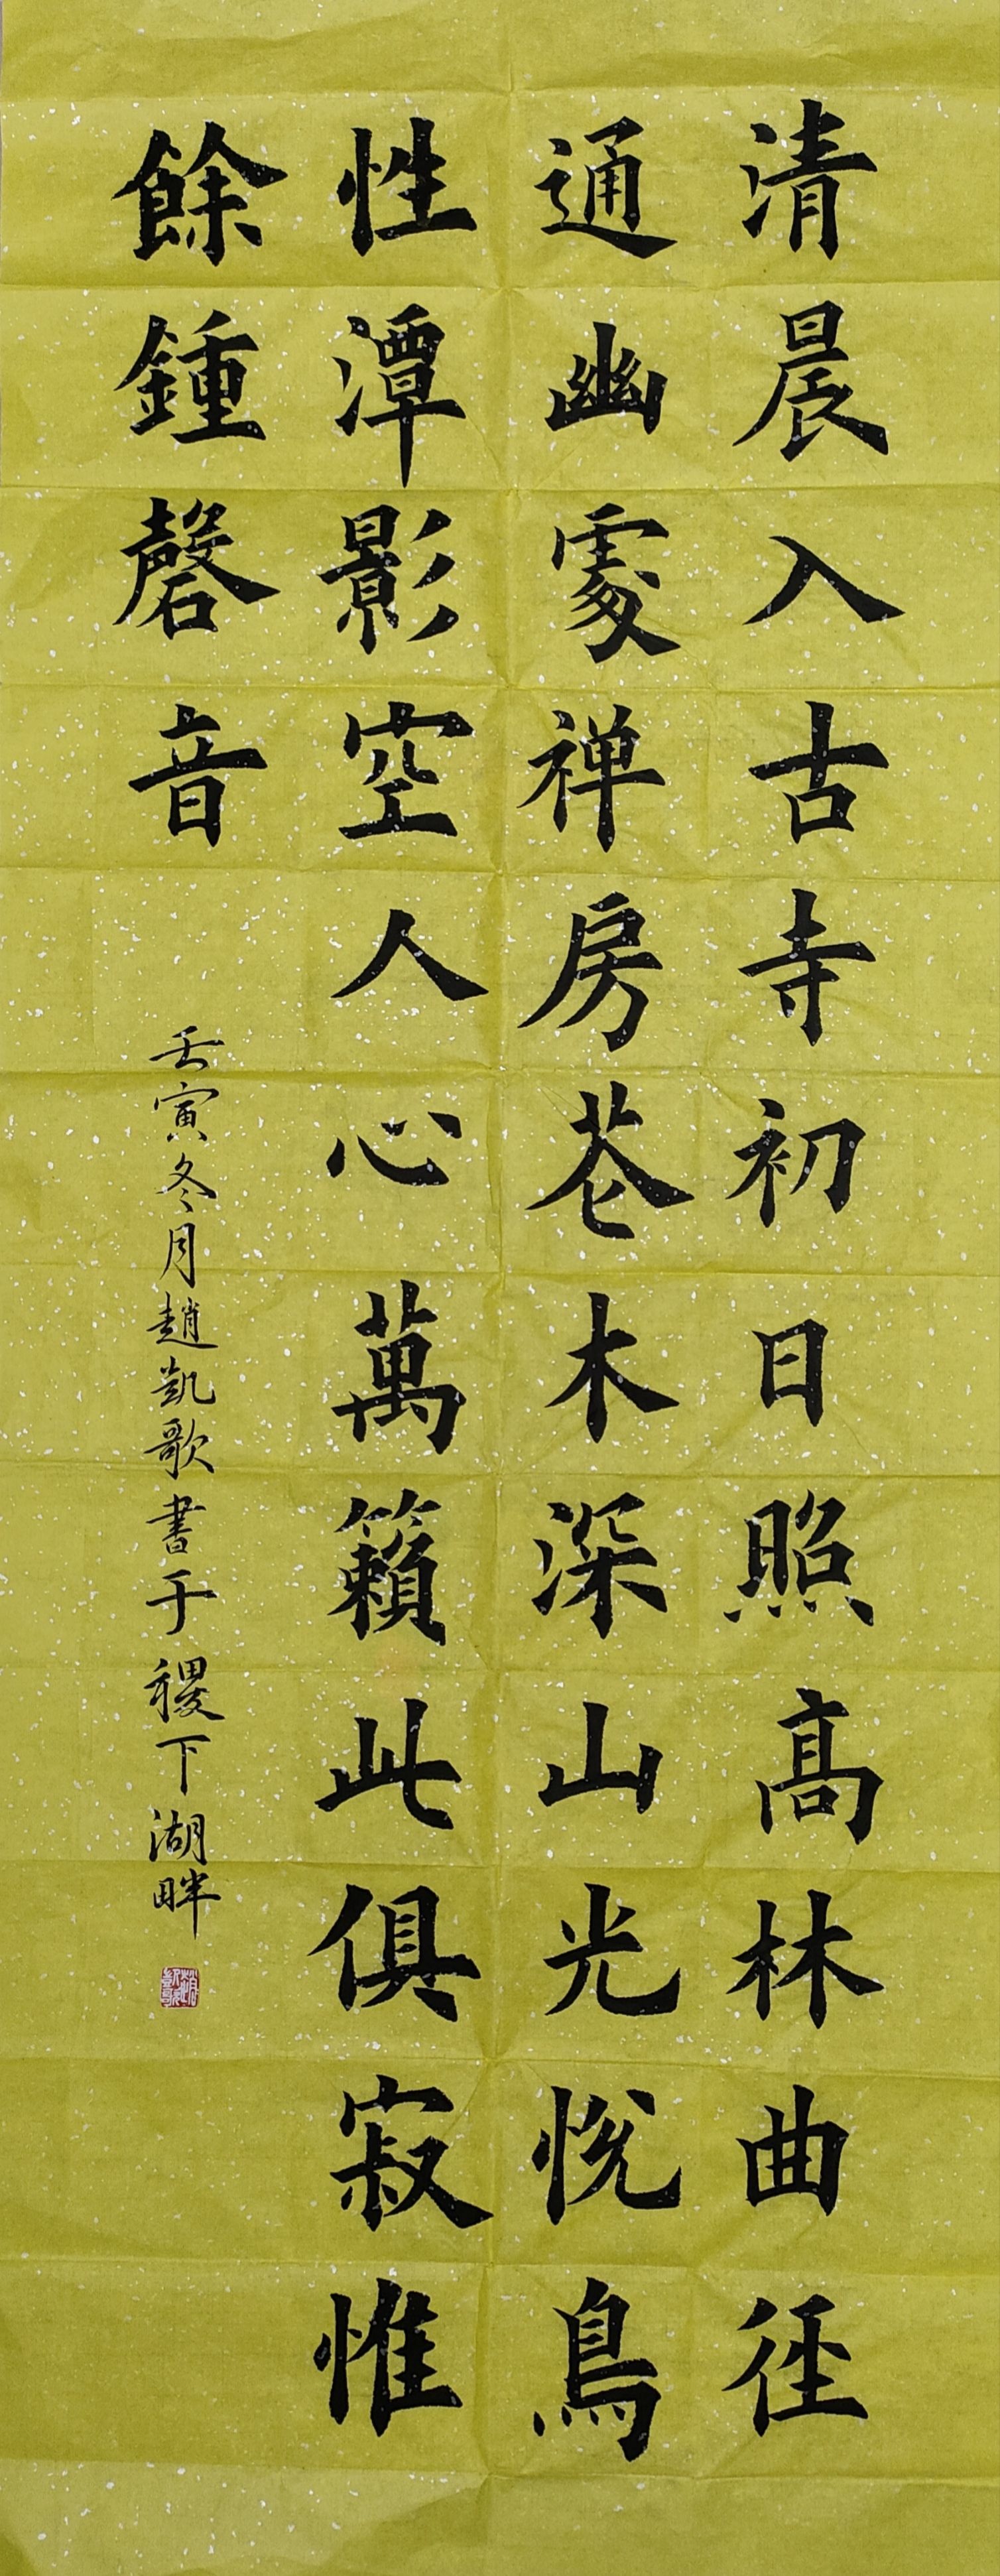 清晨入古寺初日照高林曲径
通幽處禅房花木深山光悦鳥
性潭影空人心萬籟此俱寂惟
餘鍾磬音
壬寅冬月趙凱歌書于稷下湖畔